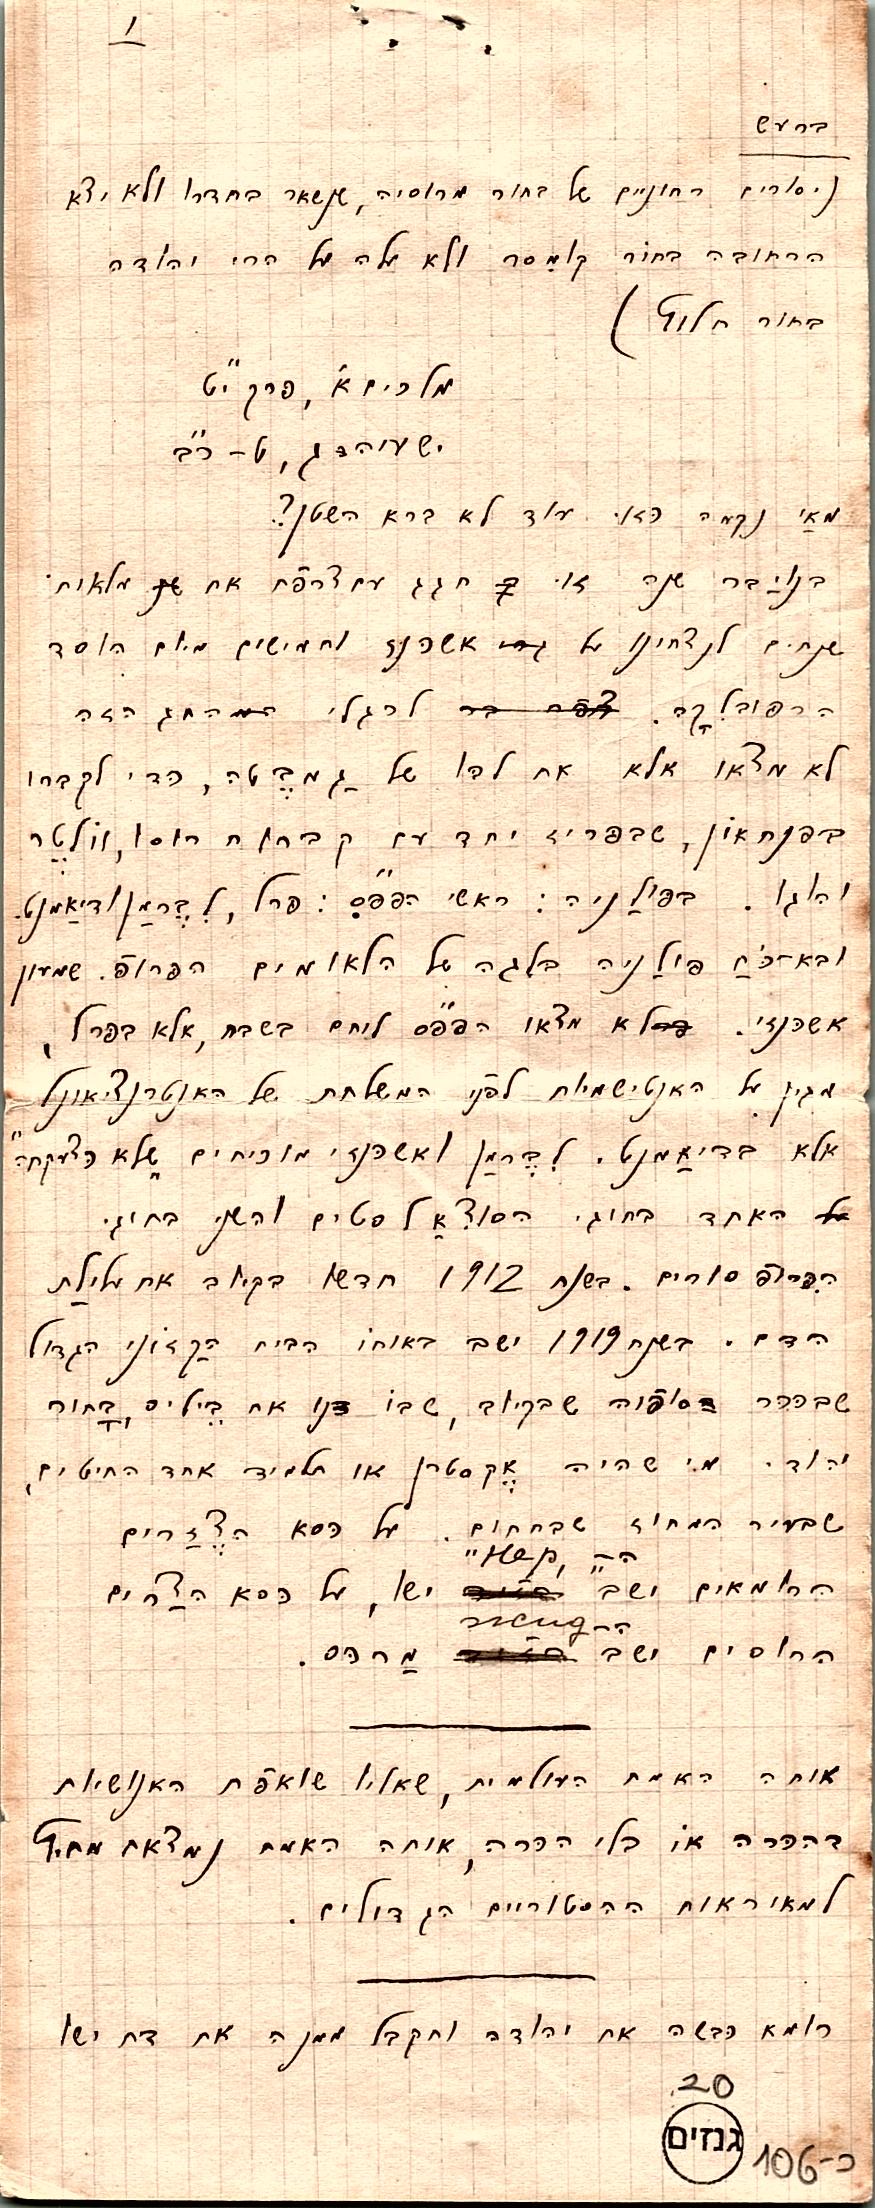 1
ברעש
ניסורים רחוניים של בחור מרוסיה, שנשאר בחדרו ולא יצא
הרחובה בתור קומסר ולא עלה על הרי יהודה
בתור חלוץ)
מלכים א׳, פרק י״ט
ישעיה ג, ט–כ״ב
מאַי נקמה כזו עוד לא ברא השטן?
בנויבר שנה זו חגג עם צרפת את מלאות
שנתים לנצחונו על אשכנז וחמישים מיום הוסד
הרפובליקה. לרגלי החג הזה
לא מצאו אלא את לבו של גַמבֶּטה, כדי לקברו
בפנתאון, שבפריז יחד עם קברות רוסו, ווֹלטֶר
והוגו. בפולַניה: ראשי הפפ״ס: פרל, לִבֶּרמַן ודיאַמנט.
ובא־כֹּחַ פולַניה בלגה של הלאומים הפרופ. שמעון
אשכנזי. לא מצאו הפפ״ס לוחם בשבת, אלא בפרל,
מגין על האנטישמיות לפני המשלחת של האנטרנציאונל
אלא בדיאַמנט. לִבֶּרמַן ואשכנזי מוכיחים שֶלא הצעקתה״
האחד בחוגי הסוצִאַלסטים והשני בחוגי
הפרופסורים. בשנת 1912 חדשו בקיוב את עלילַת
הדם. בשנת 1919 ישב באותו הבית הַקַזוֹני הגדול
שבככר סופֿוה שבקיוב, שבוֹ דנו את בֵּיליס, בָּחור
יהודי מי שהיה אֶקסטרן או תלמיד אחד החיטים,
שבעיר המחוז שבתחום. על כסא הצֶזַרים
ה־ „Hep,
הרומאים ישב ישו, על כסא הצַרים
ה־
הרוסים ישב מַרכס.
אותה האמת העולמית, שאליו שואפת האנושיות
בהכרה אוֹ בלי הכרה, אותה האמת נמצאת מחוץ
למאורעות ההסטוריים הגדולים.
רומא כבשה את יהודה ותקבל ממנה את דת ישו
20
גנזים
כ-106